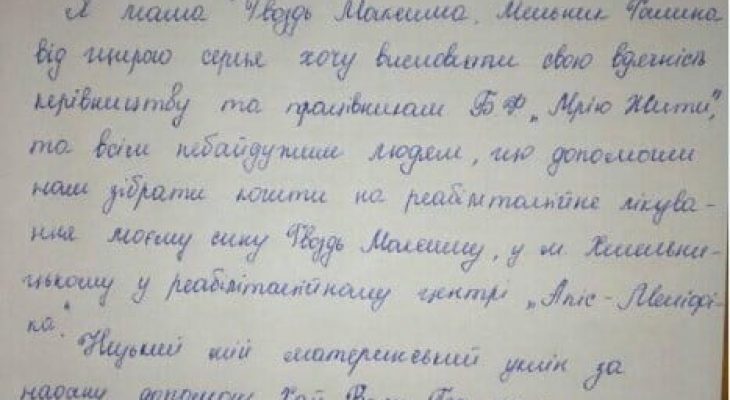 Я мама Гвоздь Максима, Мельник Галина
від щирого серця хочу висловити свою вдячність
керівництву та працівникам БФ „Мрію Жити",
та всім небайдужим людям, що допомогли
нам зібрати кошти на реабілітаційне лікува-
ння моєму сину Гвоздь Максиму, у м. Хмельни-
цькому у реабілітаційному центрі „Апіс-Меліфі-
ка."
Низький мій материнський уклін за
надану допомогу Хай